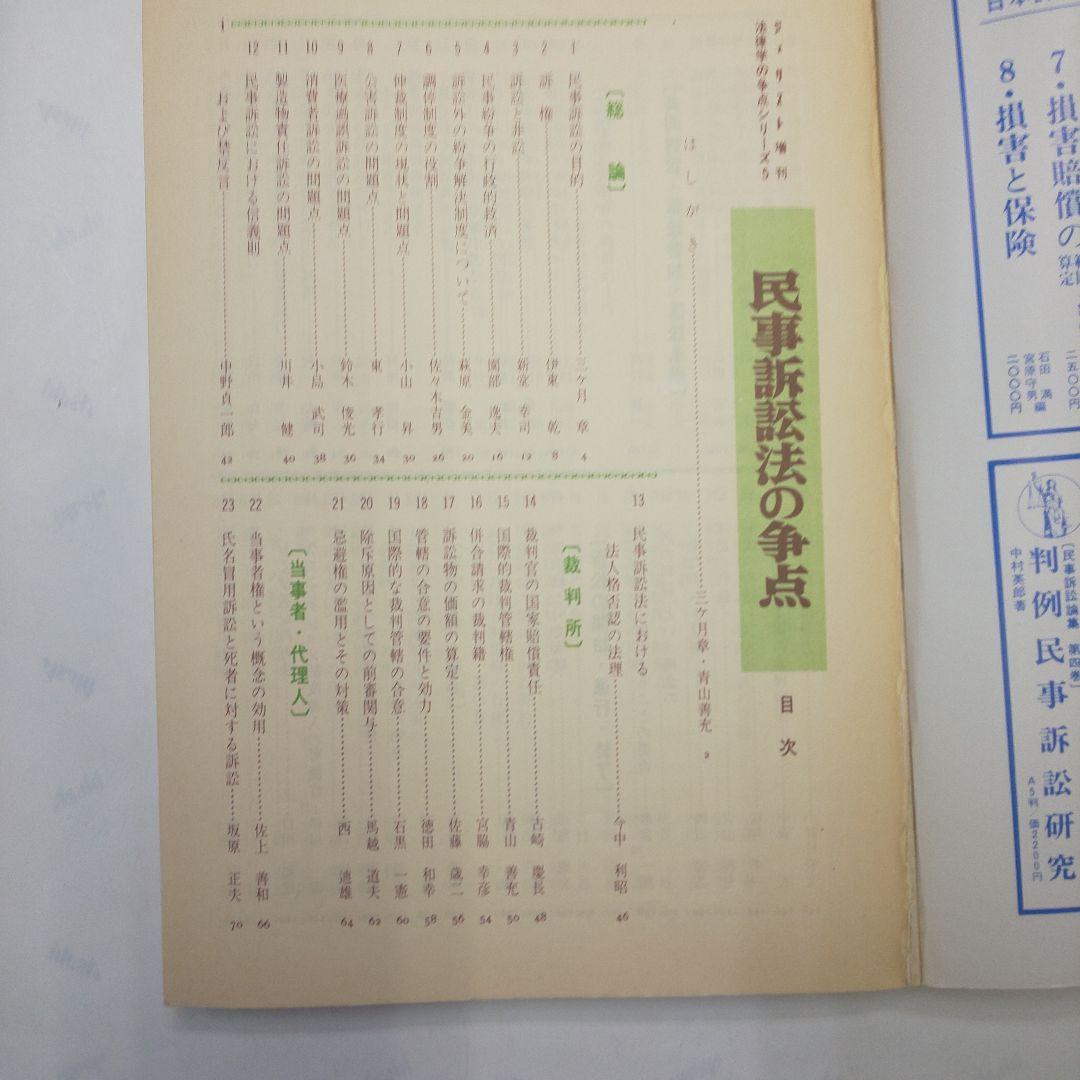 7・損害賠償の
算定
二五〇〇円
8・損害と保険
石田 満編
宮原守男
二〇〇〇円
〔民事訴訟論集 第四巻〕
判例民事訴訟研究
中村英郎著
A5判 価2200円
ジュリスト増刊
法律学の争点シリーズ5
民事訴訟法の争点
目次
はしがき……三ケ月章・青山善充 2
〔総論〕
1 民事訴訟の目的……三ケ月 章 4
2 訴権……伊東 乾 8
3 訴訟と非訟……新堂 幸司 12
4 民事紛争の行政的救済……園部 逸夫 16
5 訴訟外の紛争解決制度について……萩原 金美 20
6 調停制度の役割……佐々木吉男 26
7 仲裁制度の現状と問題点……小山 昇 30
8 公害訴訟の問題点……東 孝行 34
9 医療過誤訴訟の問題点……鈴木 俊光 36
10 消費者訴訟の問題点……小島 武司 38
11 製造物責任訴訟の問題点……川井 健 40
12 民事訴訟における信義則
および禁反言……中野貞一郎 42
13 民事訴訟法における
法人格否認の法理……今中 利昭 46
〔裁判所〕
14 裁判官の国家賠償責任……古崎 慶長 48
15 国際的裁判管轄権……青山 善充 50
16 併合請求の裁判籍……宮脇 幸彦 54
17 訴訟物の価額の算定……佐藤 歳二 56
18 管轄の合意の要件と効力……徳田 和幸 58
19 国際的な裁判管轄の合意……石黒 一憲 60
20 除斥原因としての前審関与……馬越 道夫 62
21 忌避権の濫用とその対策……西 迪雄 64
〔当事者・代理人〕
22 当事者権という概念の効用……佐上 善和 66
23 氏名冒用訴訟と死者に対する訴訟……坂原 正夫 70